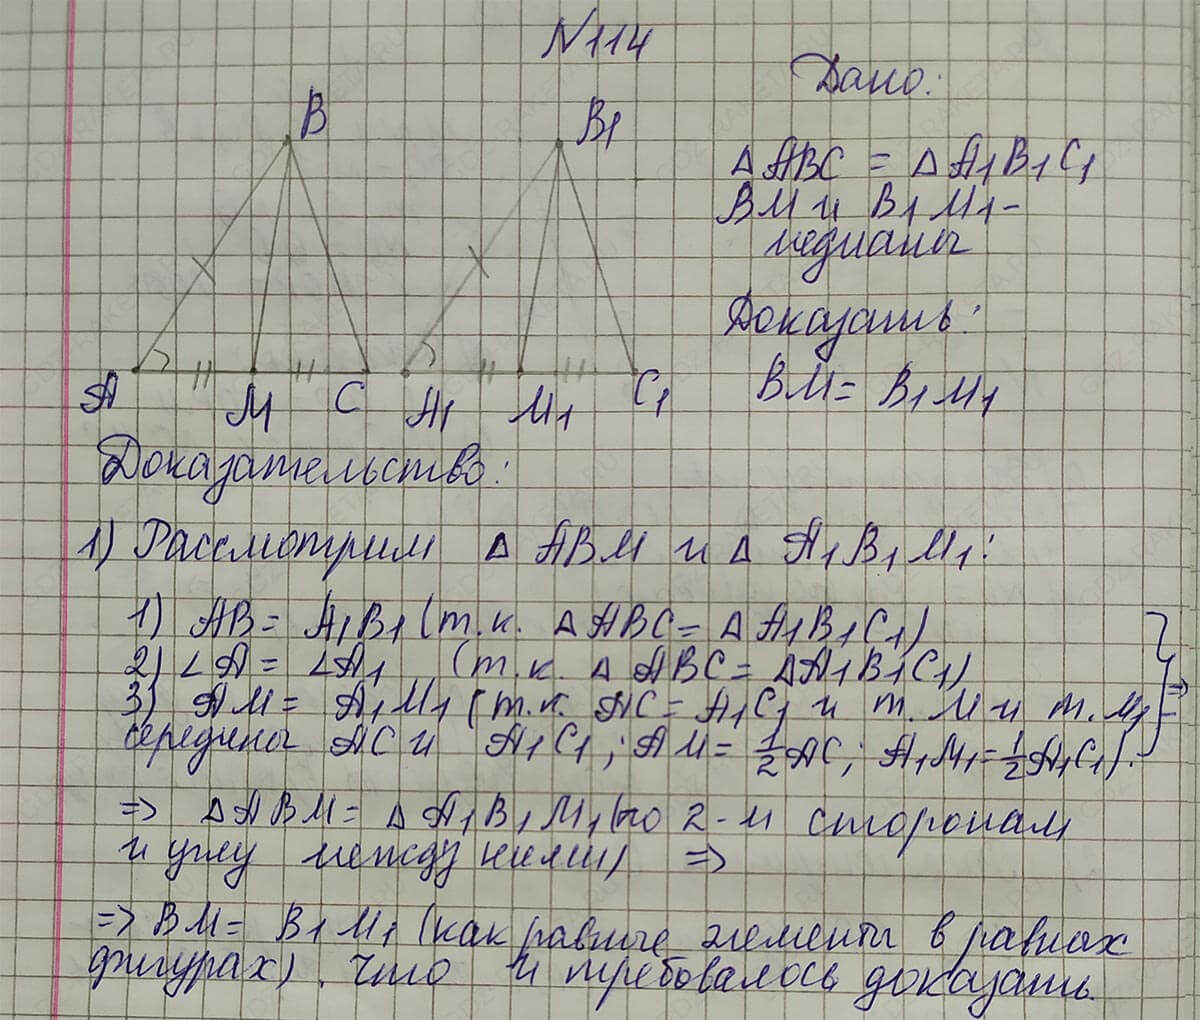 N114
Дано:
B B1
△ ABC = △ A1B1C1
BM и B1M1 -
медианы
Доказать:
BM = B1M1
A M C A1 M1 C1
Доказательство:
1) Рассмотрим △ ABM и △ A1B1M1:
1) AB = A1B1 (т.к. △ ABC = △ A1B1C1)
2) ∠A = ∠A1 (т.к. △ ABC = △A1B1C1)
3) AM = A1M1 (т.к. AC = A1C1 и т. M и т. M1 ⇒
середины AC и A1C1; AM = 1/2 AC; A1M1 = 1/2 A1C1).
⇒ △ABM = △ A1B1M1 (по 2-м сторонам
и углу между ними) ⇒
⇒ BM = B1M1 (как равные элементы в равных
фигурах). Что и требовалось доказать.